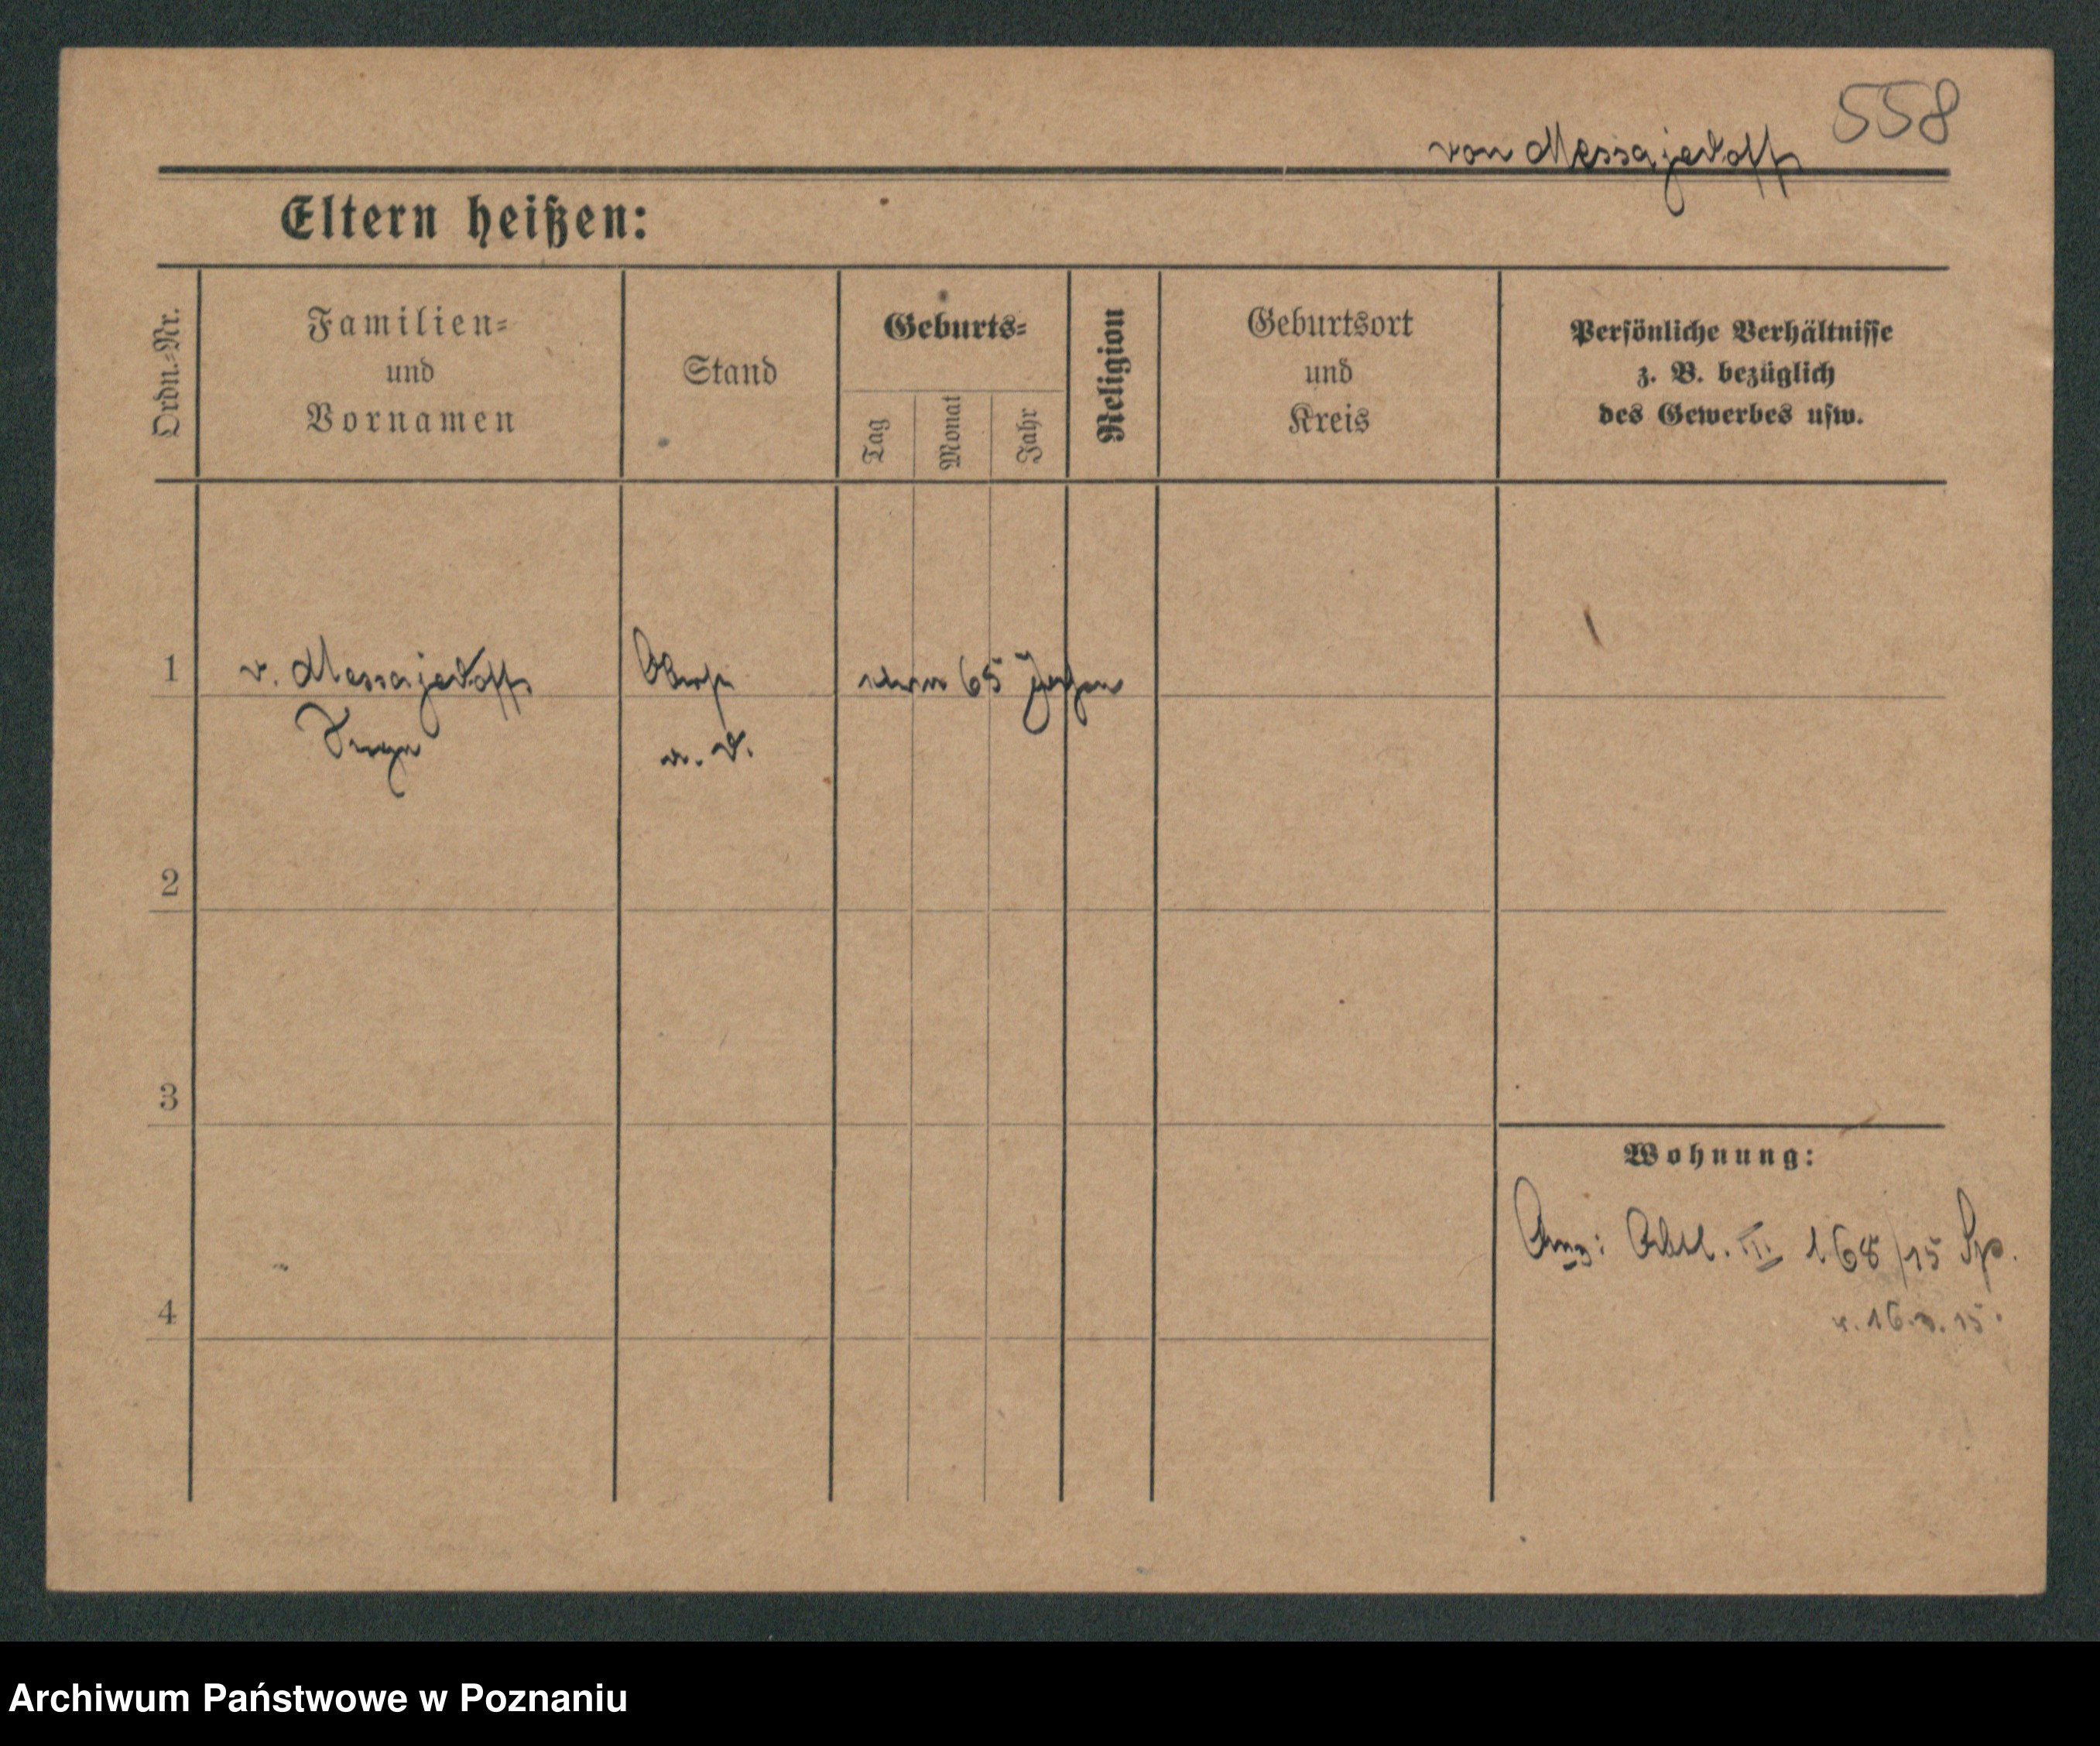 558
von Messajedoff
Eltern heißen:
Ordn.-Nr.
Familien-
und
Vornamen
Stand
Geburts-
Tag
Monat
Jahr
Religion
Geburtsort
und
Kreis
Persönliche Verhältnisse
z. B. bezüglich
des Gewerbes usw.
1
v. Messajedoff
Oberst
a. D.
etwa 65 Jahre
2
3
Wohnung:
Abtl. III 168/15 Sp.
4